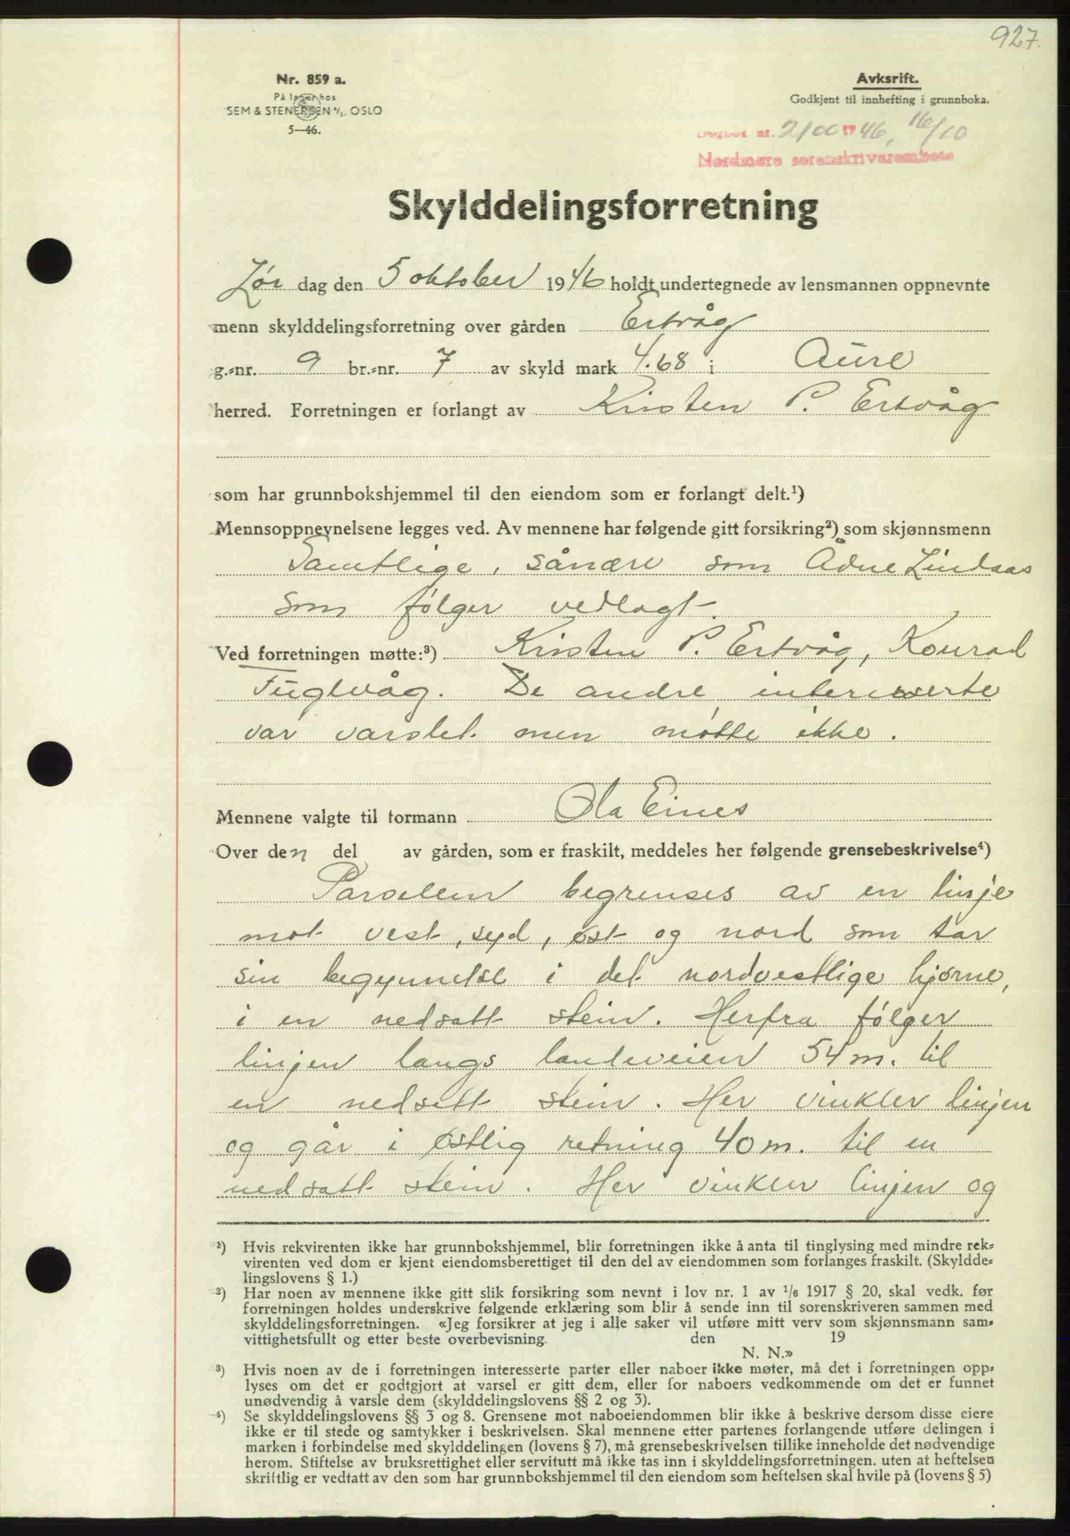 927.
Nr. 859 a.
På lager hos
SEM & STENERSEN A/S. OSLO
5—46.
Avskrift.
Godkjent til innhefting i grunnboka.
Dagbok nr. 2100 1946, 16/10
Nordmøre sorenskriverembete
Skylddelingsforretning
Lør dag den 5 oktober 1946 holdt undertegnede av lensmannen oppnevnte
menn skylddelingsforretning over gården Ertvåg
g.-nr. 9 br.-nr. 7 av skyld mark 4.68 i Aure
herred. Forretningen er forlangt av Kristen P. Ertvåg
som har grunnbokshjemmel til den eiendom som er forlangt delt.¹)
Mennsoppnevnelsene legges ved. Av mennene har følgende gitt forsikring²) som skjønnsmenn
Samtlige, sånær som Ådne Lindaas
som følger vedlagt.
Ved forretningen møtte:³) Kristen P. Ertvåg, Konrad
Fuglvåg. De andre interesserte
var varslet men møtte ikke.
Mennene valgte til formann Ola Eines
Over den del av gården, som er fraskilt, meddeles her følgende grensebeskrivelse⁴)
Parselen begrenses av en linje
mot vest, syd, øst og nord som tar
sin begynnelse i det nordvestlige hjørne,
i en nedsatt stein. Herfra følger
linjen langs landeveien 54 m. til
en nedsatt stein. Her vinkler linjen
og går i østlig retning 40 m. til en
nedsatt stein. Her vinkler linjen og
¹) Hvis rekvirenten ikke har grunnbokshjemmel, blir forretningen ikke å anta til tinglysing med mindre rek-
virenten ved dom er kjent eiendomsberettiget til den del av eiendommen som forlanges fraskilt. (Skyldde-
lingslovens § 1.)
²) Har noen av mennene ikke gitt slik forsikring som nevnt i lov nr. 1 av 1/6 1917 § 20, skal vedk. før
forretningen holdes underskrive følgende erklæring som blir å sende inn til sorenskriveren sammen med
skylddelingsforretningen. «Jeg forsikrer at jeg i alle saker vil utføre mitt verv som skjønnsmann sam-
vittighetsfullt og etter beste overbevisning. den 19
N. N.»
³) Hvis noen av de i forretningen interesserte parter eller naboer ikke møter, må det i forretningen opp-
lyses om det er godtgjort at varsel er gitt dem, eller for naboers vedkommende om det er funnet
unødvendig å varsle dem (skylddelingslovens §§ 2 og 3).
⁴) Se skylddelingslovens §§ 3 og 8. Grensene mot naboeiendommen blir ikke å beskrive dersom disse eiere
ikke er til stede og samtykker i beskrivelsen. Skal mennene etter partenes forlangende utføre delingen i
marken i forbindelse med skylddelingen (lovens § 7), må grensebeskrivelsen tillike inneholde det nødvendige
herom. Stiftelse av bruksrettighet eller servitutt må ikke tas inn i skylddelingsforretningen. uten at heftelsen
skriftlig er vedtatt av den som har grunnbokshjemmel til den eiendom som heftelsen skal hvile på (lovens § 5)